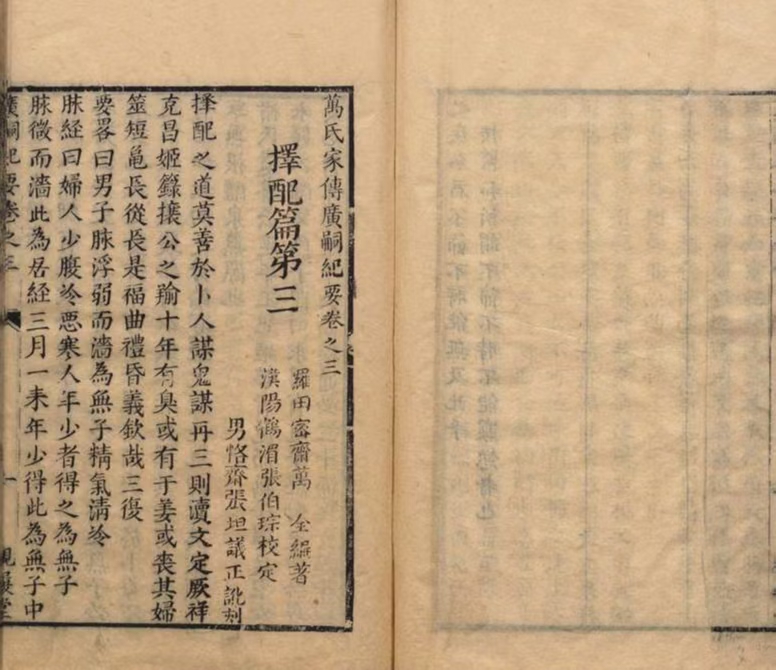 萬氏家傳廣嗣紀要卷之三
羅田密齋萬 全編著
漢陽鶴湄張伯琮校定
男恪齋張坦議正訛刻
擇配篇第三
擇配之道莫善於卜人謀鬼謀再三則瀆文定厥祥
克昌姬籙攘公之羭十年有臭或有于姜或喪其婦
筮短龜長從長是福曲禮昏義欽哉三復
要畧曰男子脉浮弱而濇為無子精氣清冷
脉經曰婦人少腹冷惡寒人年少者得之為無子
脉微而濇此為居経三月一来年少得此為無子中
廣嗣紀要卷之三 一